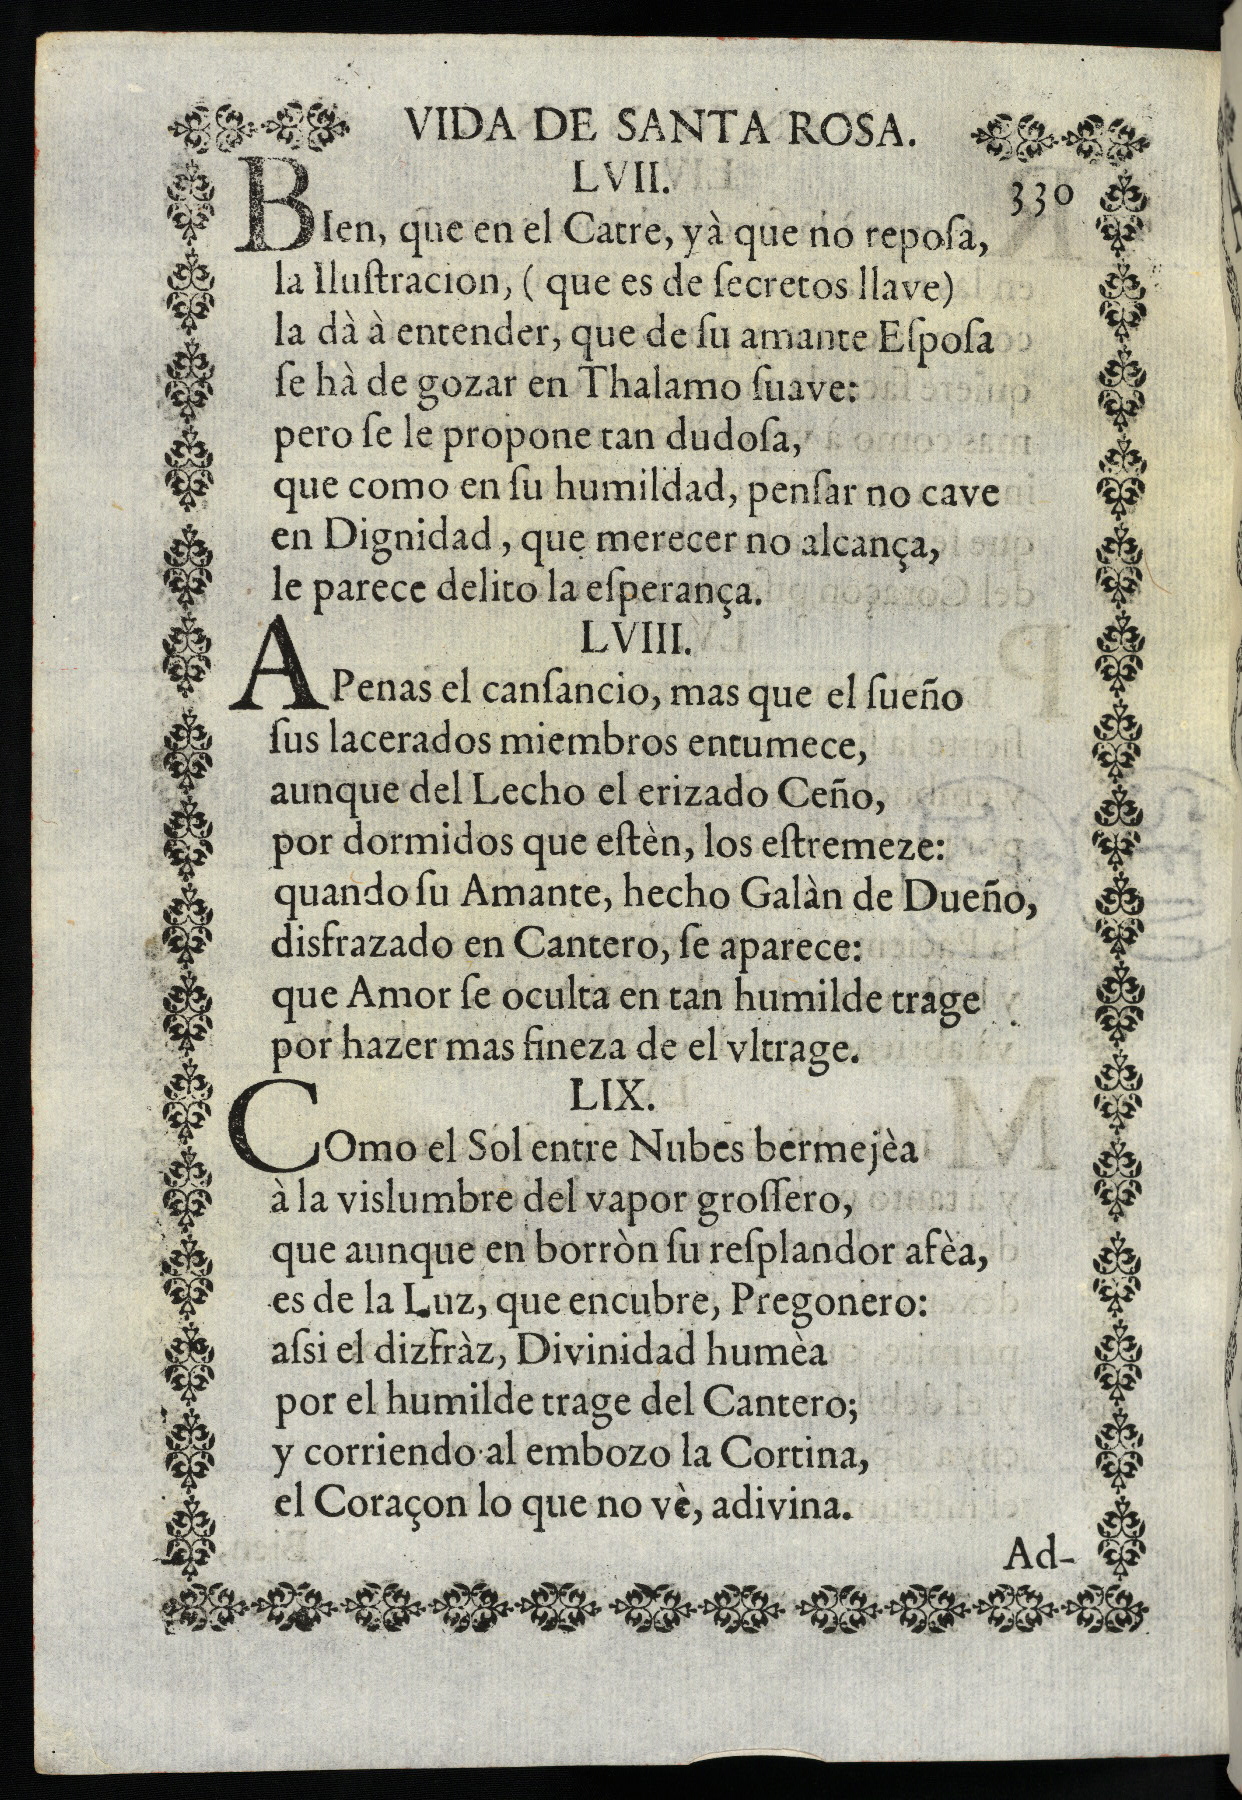 VIDA DE SANTA ROSA.
LVII.
330
BIen, que en el Catre, yà que no reposa,
la Ilustracion, ( que es de secretos llave)
la dà à entender, que de su amante Esposa
se hà de gozar en Thalamo suave:
pero se le propone tan dudosa,
que como en su humildad, pensar no cave
en Dignidad, que merecer no alcança,
le parece delito la esperança.
LVIII.
APenas el cansancio, mas que el sueño
sus lacerados miembros entumece,
aunque del Lecho el erizado Ceño,
por dormidos que estèn, los estremeze:
quando su Amante, hecho Galàn de Dueño,
disfrazado en Cantero, se aparece:
que Amor se oculta en tan humilde trage
por hazer mas fineza de el vltrage.
LIX.
COmo el Sol entre Nubes bermejèa
à la vislumbre del vapor grossero,
que aunque en borròn su resplandor afèa,
es de la Luz, que encubre, Pregonero:
assi el dizfràz, Divinidad humèa
por el humilde trage del Cantero;
y corriendo al embozo la Cortina,
el Coraçon lo que no vè, adivina.
Ad-